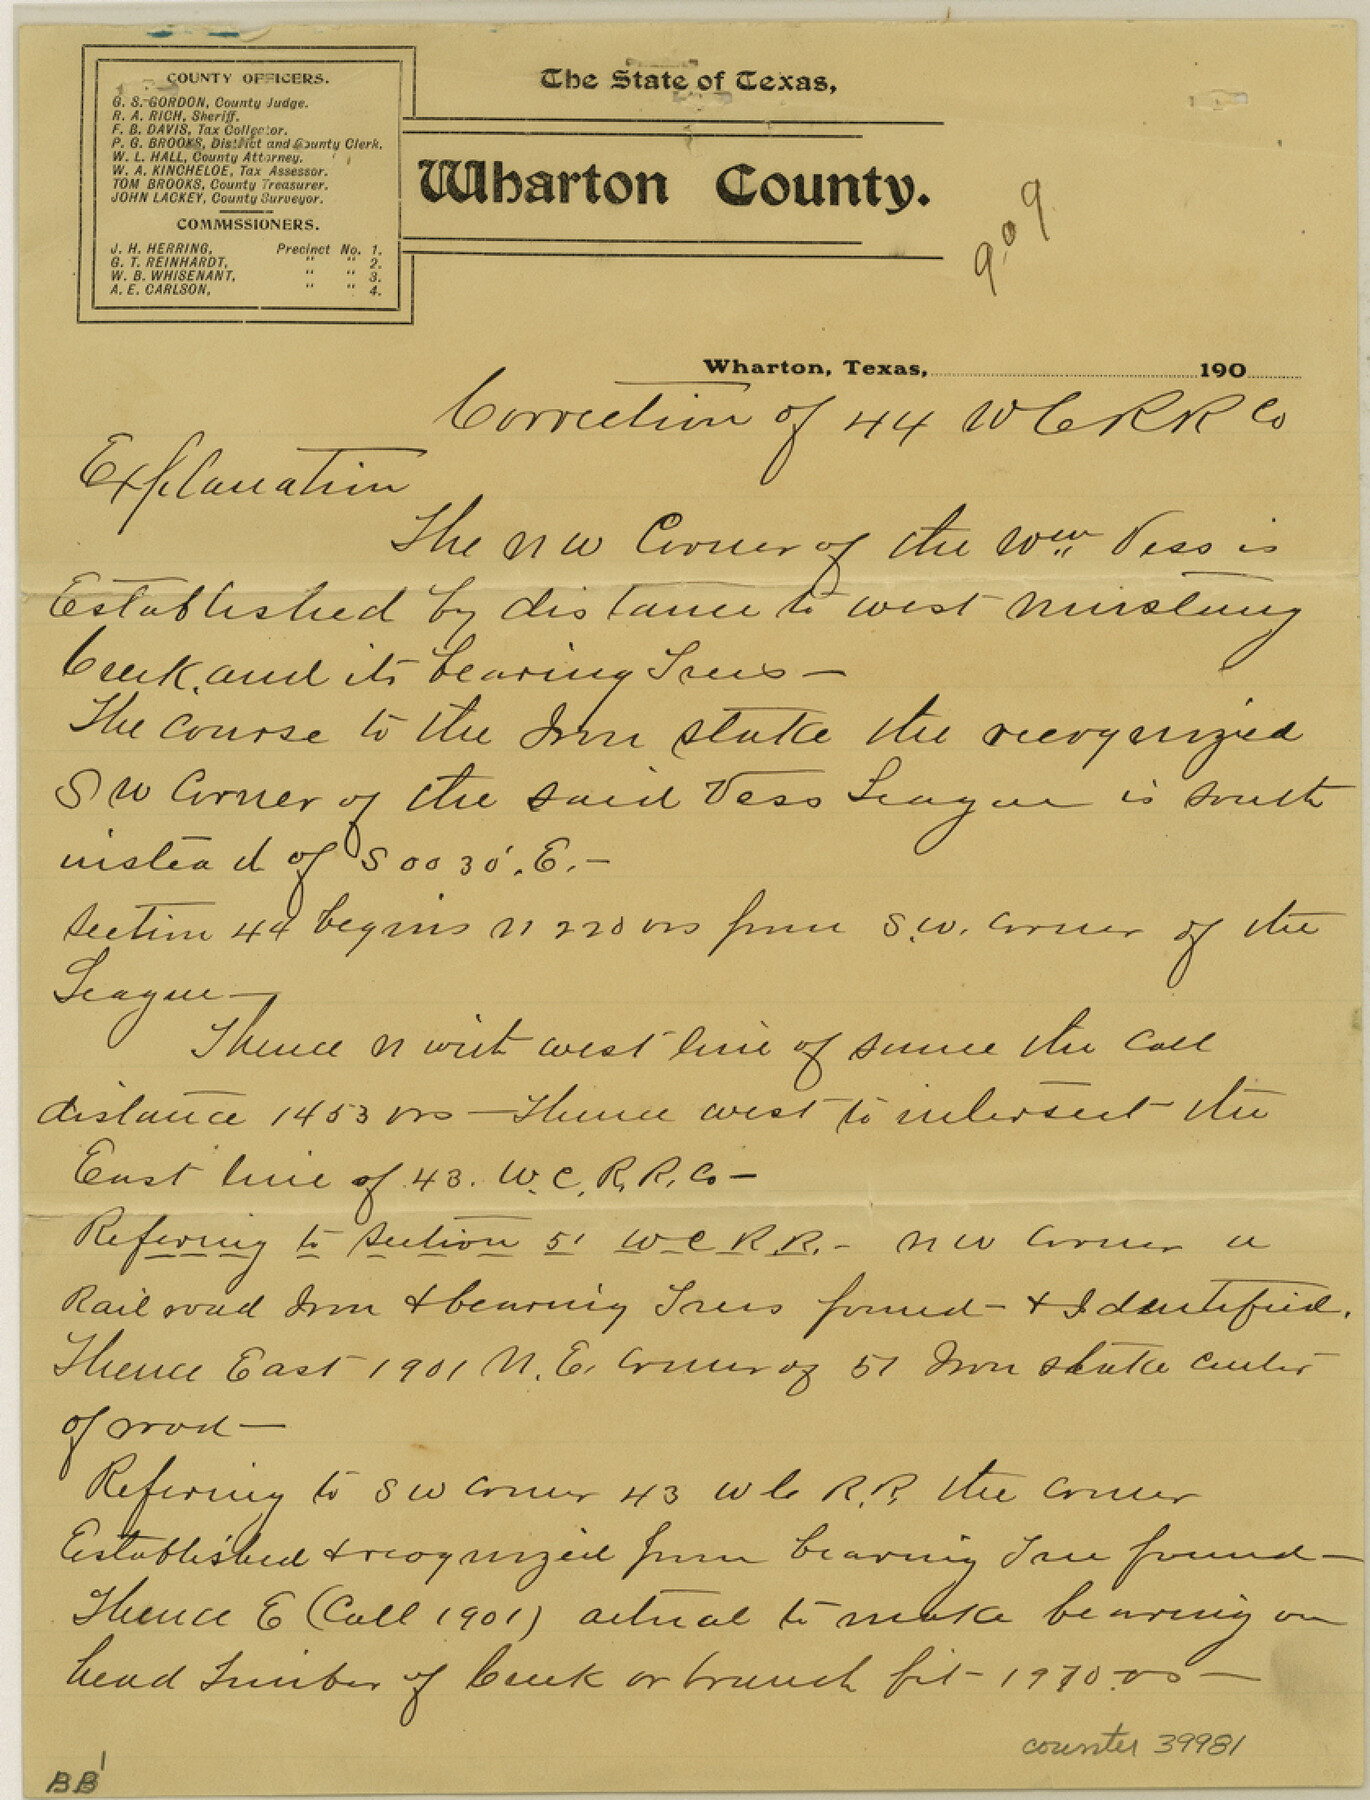 COUNTY OFFICERS.
G. S. GORDON, County Judge.
R. A. RICH, Sheriff.
F. B. DAVIS, Tax Collector.
P. G. BROOKS, District and County Clerk.
W. L. HALL, County Attorney.
W. A. KINCHELOE, Tax Assessor.
TOM BROOKS, County Treasurer.
JOHN LACKEY, County Surveyor.
COMMISSIONERS.
J. H. HERRING, Precinct No. 1.
G. T. REINHARDT, " " 2.
W. B. WHISENANT, " " 3.
A. E. CARLSON, " " 4.
The State of Texas,
Wharton County.
909
Wharton, Texas, 190
Correction of 44 W C R R Co
Explanation
The N W Corner of the Wm Vess is
Established by distance to west mustang
Creek, and its bearing Trees —
The course to the Iron stake the recognized
S W Corner of the said Vess League is south
instead of S 00 30'. E. —
Section 44 begins N 220 vrs from S.W. corner of the
League —
Thence N with west line of same the call
distance 1453 vrs — Thence west to intersect the
East line of 43. W. C. R. R. Co —
Refering to section 51 W C R. R. — N W Corner a
Rail road Iron & bearing Trees found — & Identified.
Thence East 1901 N. E. Corner of 51 Iron stake center
of road —
Refering to S W corner 43 W C R. R. the corner
Established & recognized from bearing Tree found —
Thence E (Call 1901) actual to make bearing on
head Timber of Creek or branch fit — 1970 vrs —
counter 39981
BB'